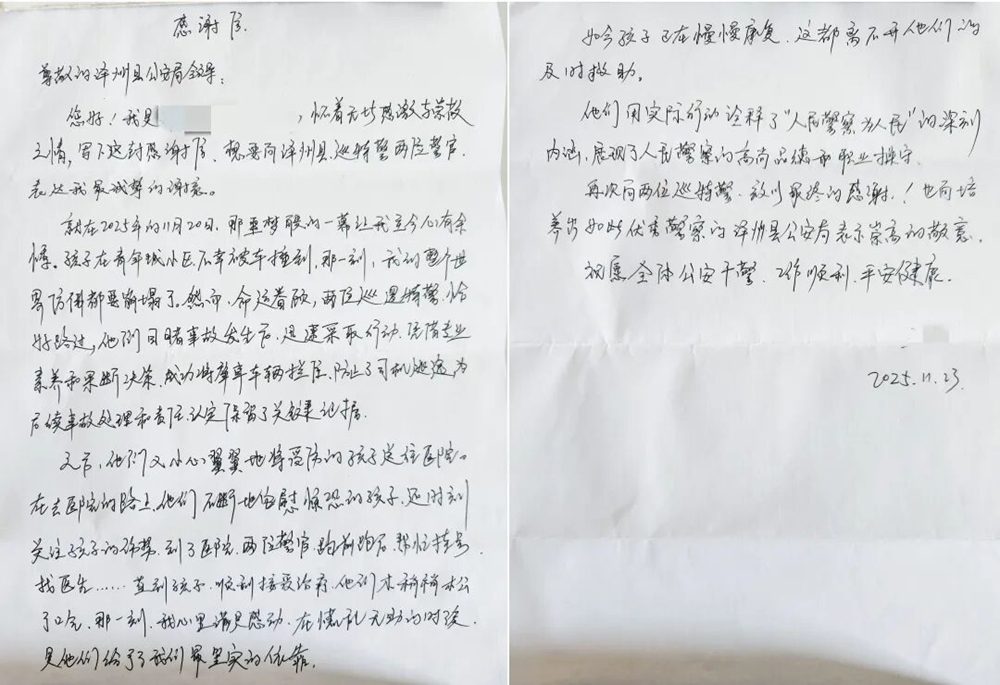 感谢信
尊敬的泽州县公安局领导:
您好!我是,怀着无比感激与崇敬
之情,写下这封感谢信,想要向泽州县巡特警两位警官
表达我最诚挚的谢意。
就在2025年的11月20日,那噩梦般的一幕让我至今心有余
悸。孩子在青年城小区不幸被车撞到,那一刻,我的整个世
界仿佛都要崩塌了。然而,命运眷顾,两位巡逻特警恰
好路过,他们目睹事故发生后,迅速采取行动,凭借专业
素养和果断决策,成功将肇事车辆拦住,防止了司机逃逸,为
后续事故处理和责任认定保留了关键证据。
之后,他们又小心翼翼地将受伤的孩子送往医院。
在去医院的路上,他们不断地安慰惊恐的孩子,还时刻
关注孩子的伤势,到了医院,两位警官跑前跑后,帮忙挂号,
找医生……直到孩子顺利接受治疗,他们才稍稍松
了口气,那一刻,我心里满是感动,在慌乱无助的时候,
是他们给了我们最坚实的依靠。
如今孩子正在慢慢康复,这都离不开他们的
及时救助。
他们用实际行动诠释了"人民警察为人民"的深刻
内涵,展现了人民警察的高尚品德和职业操守。
再次向两位巡特警致以最深的感谢!也向培
养出如此优秀警察的泽州县公安局表示崇高的敬意。
祝愿全体公安干警,工作顺利,平安健康。
2025.11.23